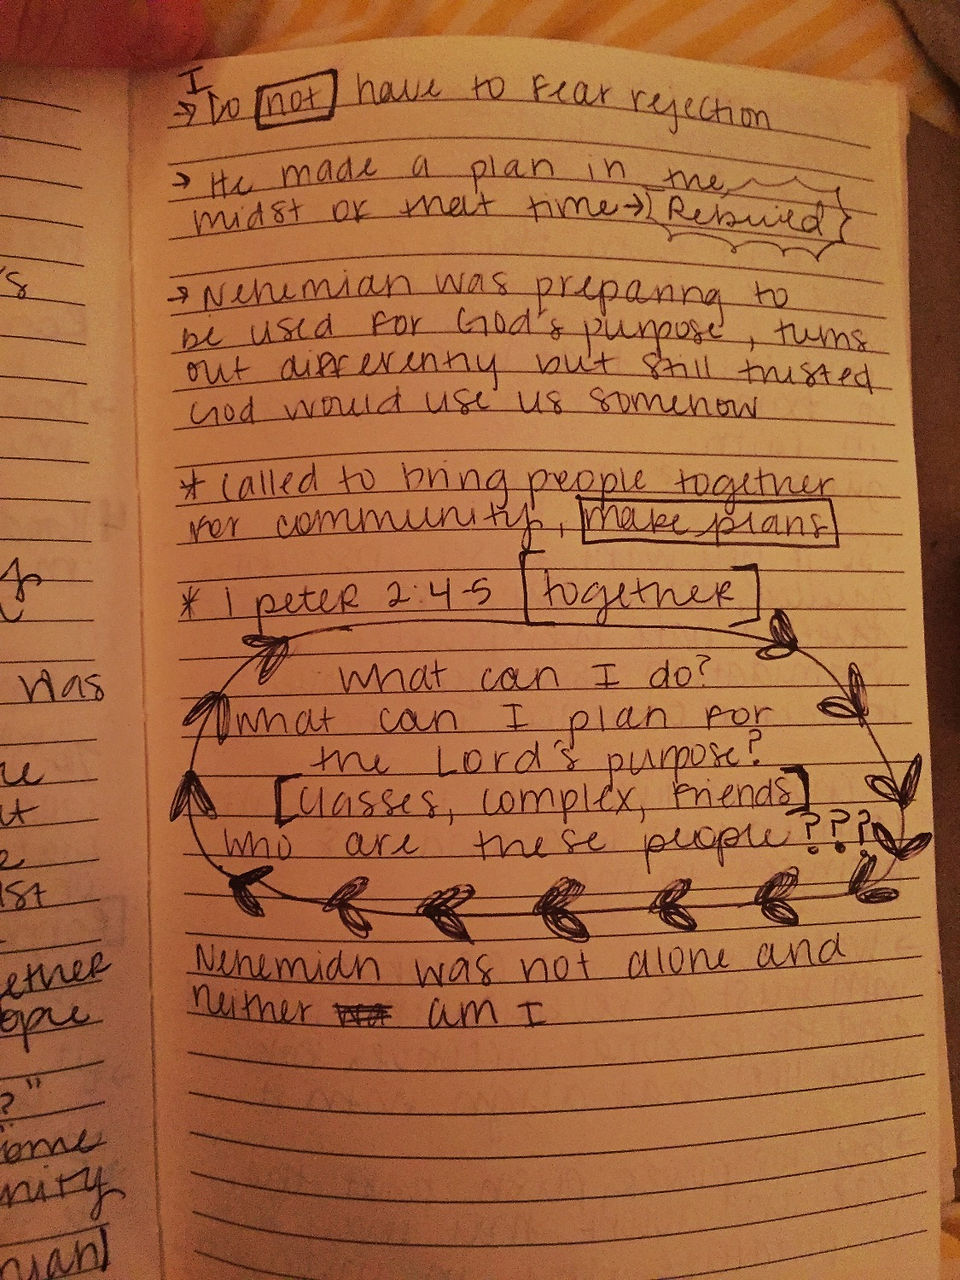 's
Was
ether
ople
?"
ome
nity
I
→ Do not have to fear rejection
→ He made a plan in the
midst of that time → {Rebuild}
→ Nehemiah was preparing to
be used for God's purpose, turns
out differently but still trusted
God would use us somehow
* called to bring people together
for community, make plans
* 1 peter 2:4-5 [together]
What can I do?
What can I plan for
the Lord's purpose?
[classes, complex, friends]
who are these people???
Nehemiah was not alone and
neither am I